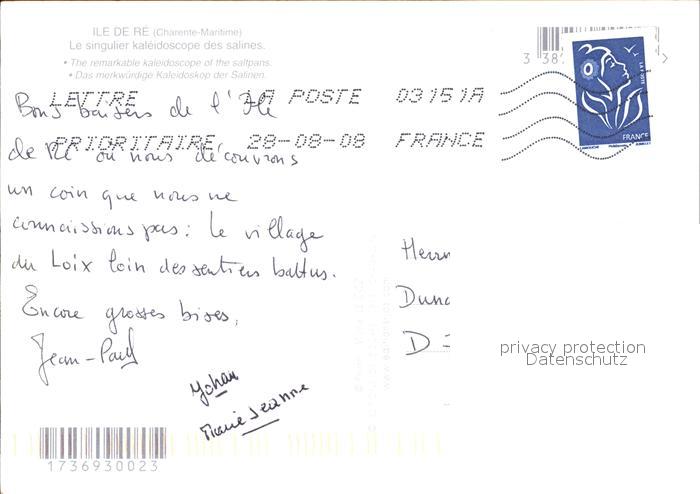 ILE DE RÉ (Charente-Maritime)
Le singulier kaléidoscope des salines.
• The remarkable kaleidoscope of the saltpans.
• Das merkwürdige Kaleidoskop der Salinen.
LETTRE LA POSTE 03151A
PRIORITAIRE 28-08-08 FRANCE
FRANCE
Bons baisers de l'Ile
de Ré où nous découvrons
un coin que nous ne
connaissions pas: Le village
du Loix loin des sentiers battus.
Encore grosses bises,
Jean-Paul
Yohan
Marie Jeanne
Herrn
D
privacy protection
Datenschutz
1736930023